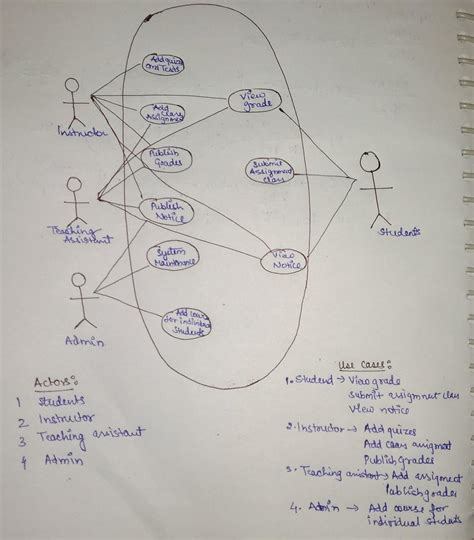 Add quizes
and Tests
Instructor
Add
class
Assignment
View
grade
Publish
Grades
Submit
Assignment
class
Teaching
Assistant
Publish
Notice
Students
System
Maintenance
View
Notice
Admin
Add course
for individual
Students
Actors:
1 Students
2 Instructor
3 Teaching assistant
4 Admin
Use Cases:
1. Student → View grade
Submit assignment class
View notice
2. Instructor → Add quizes
Add class
Publish Grades
3. Teaching assistant → Add assigment
Publish grades
4. Admin → Add course for
individual students